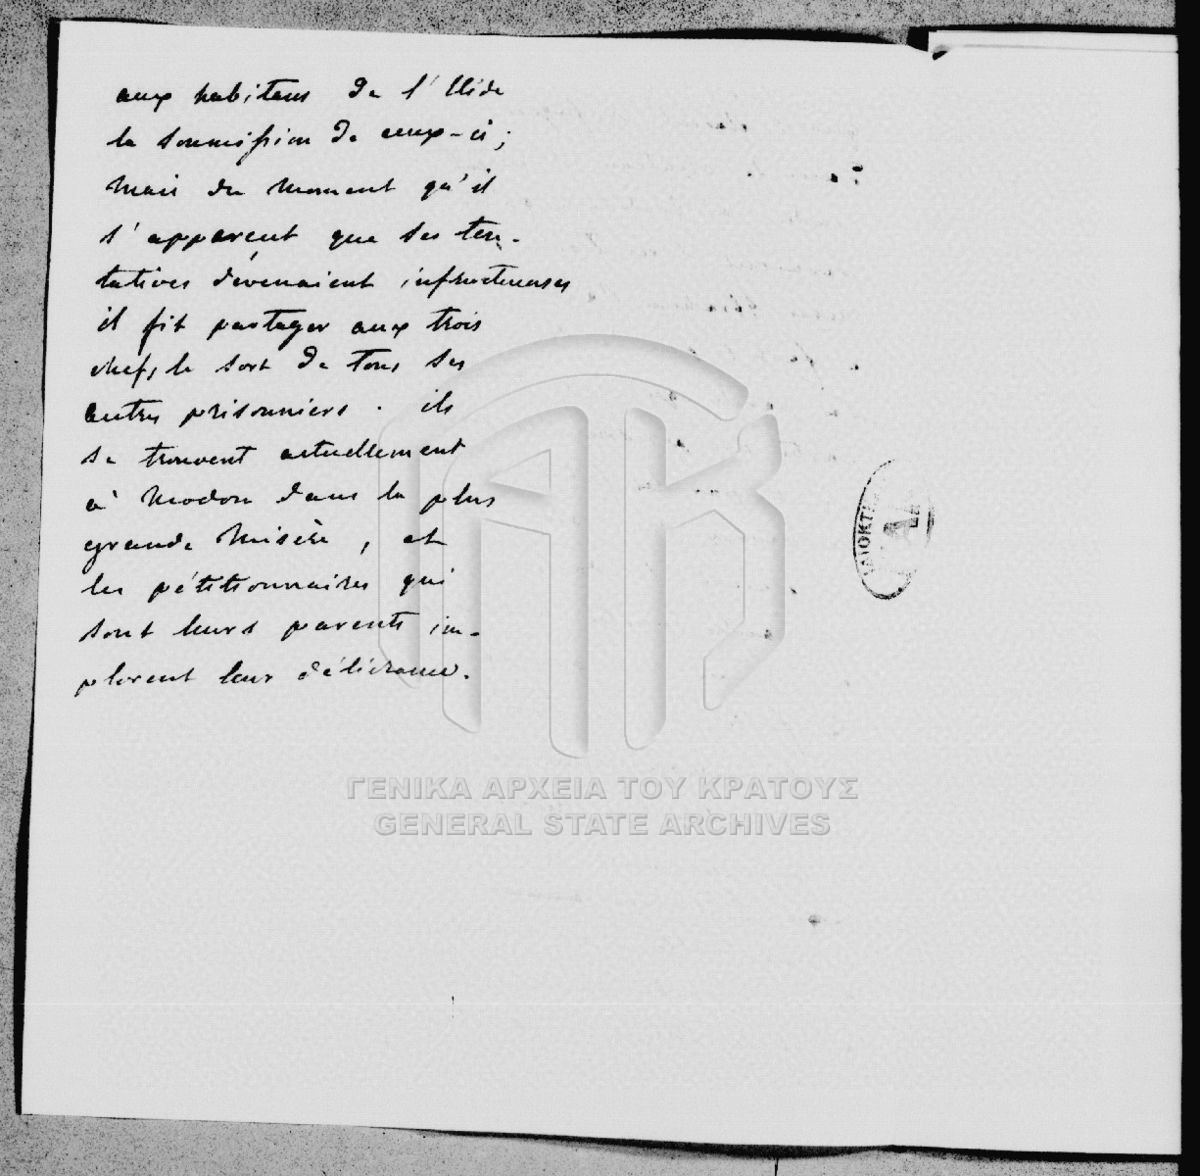 aux habitans de l'Elide
la soumission de ceux-ci;
mais du moment qu'il
s'apparçut que ses ten-
tatives dévenaient infructueuses
il fit partager aux trois
chefs le sort de tous ses
autres prisonniers. ils
se trouvent actuellement
à Modon dans la plus
grande misère, et
les pétitionnaires qui
sont leurs parents im-
plorent leur délivrance.
ΓΕΝΙΚΑ ΑΡΧΕΙΑ ΤΟΥ ΚΡΑΤΟΥΣ
GENERAL STATE ARCHIVES